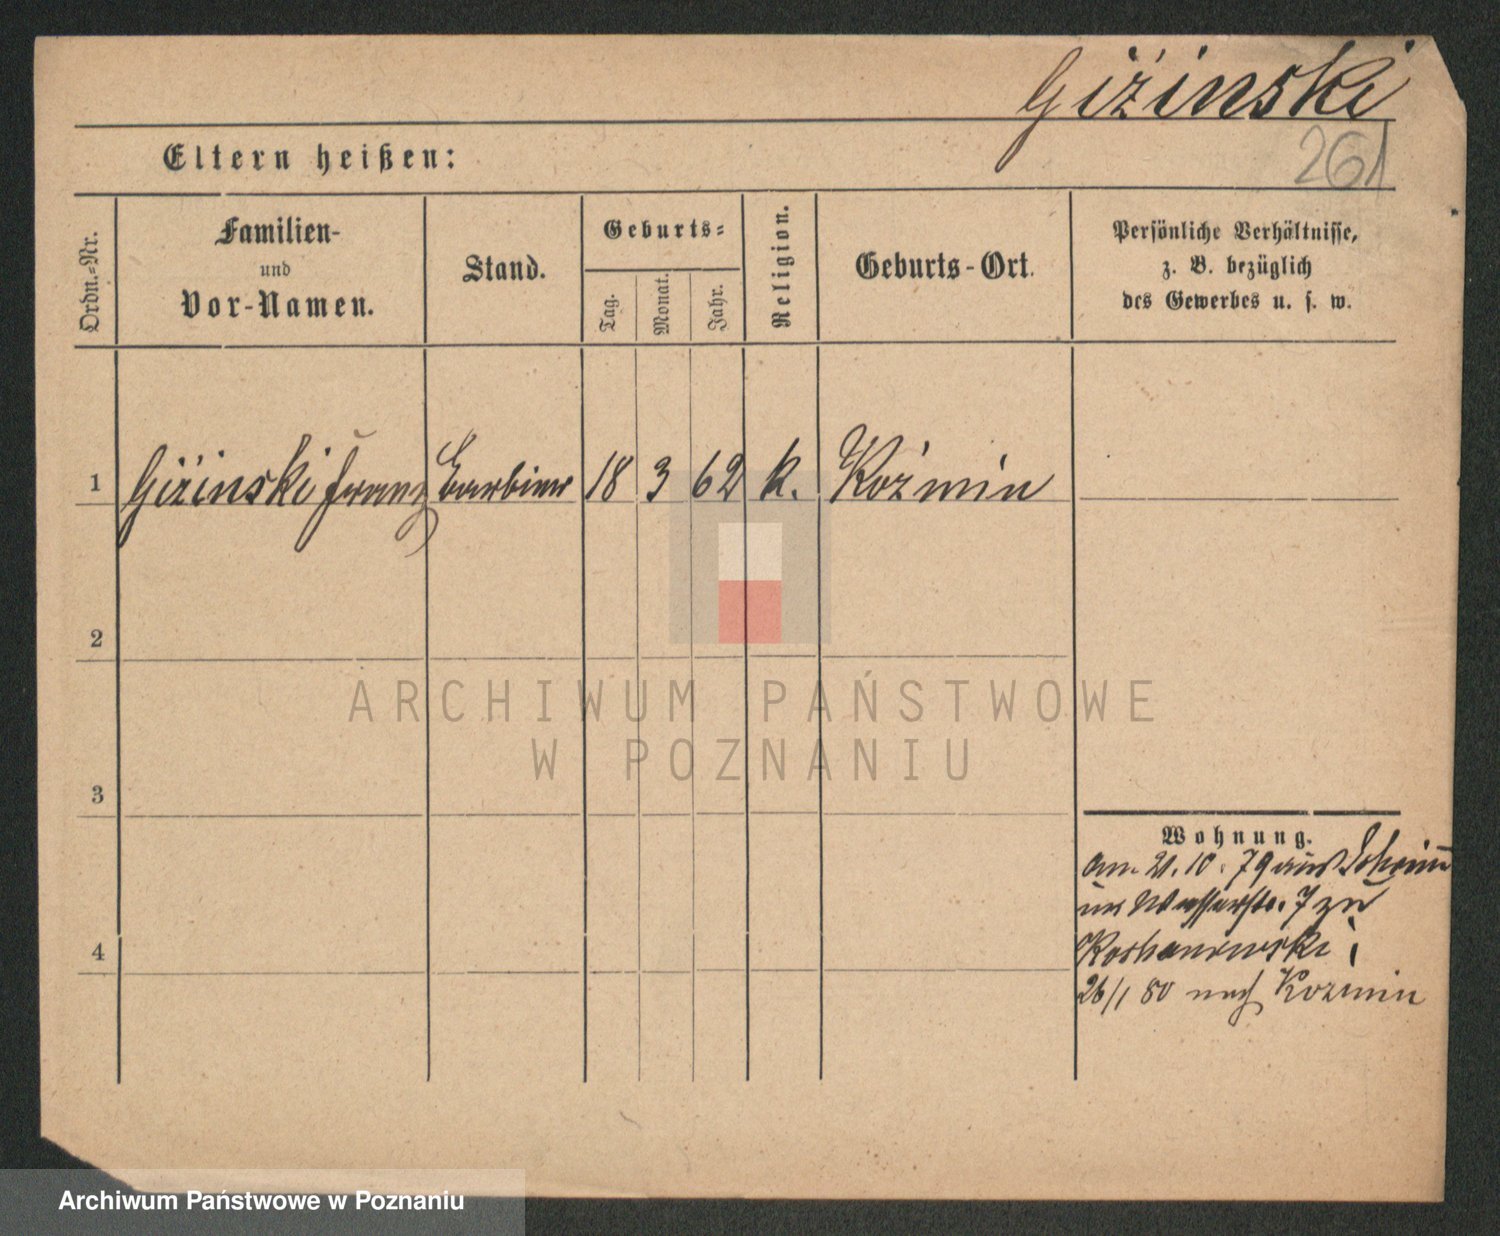 Giżinski
261
Eltern heißen:
Ordn.-Nr.
Familien-
und
Vor-Namen.
Stand.
Geburts-
Tag.
Monat.
Jahr.
Religion.
Geburts-Ort.
Persönliche Verhältnisse,
z. B. bezüglich
des Gewerbes u. s. w.
1 Giżinski Franz Barbier 18 3 62 k. Koźmin
2
3
4
Wohnung.
am 21.10.79 aus Schrimm
Wasserstr. 7 zu
26/1 80 nach Kozmin
ARCHIWUM PAŃSTWOWE
W POZNANIU
Archiwum Państwowe w Poznaniu